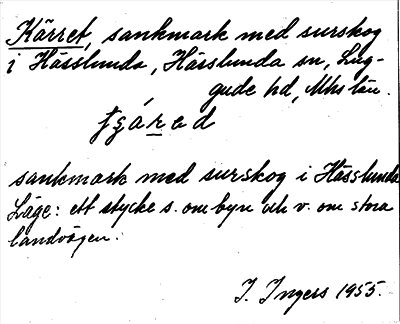 Kärret, sankmark med surskog
i Hässlunda, Hässlunda sn, Lug-
gude hd, Mhs län.
sankmark med surskog i Hässlunda
Läge: ett stycke s. om byn och v. om stora
landsvägen.
I. Ingers 1955.